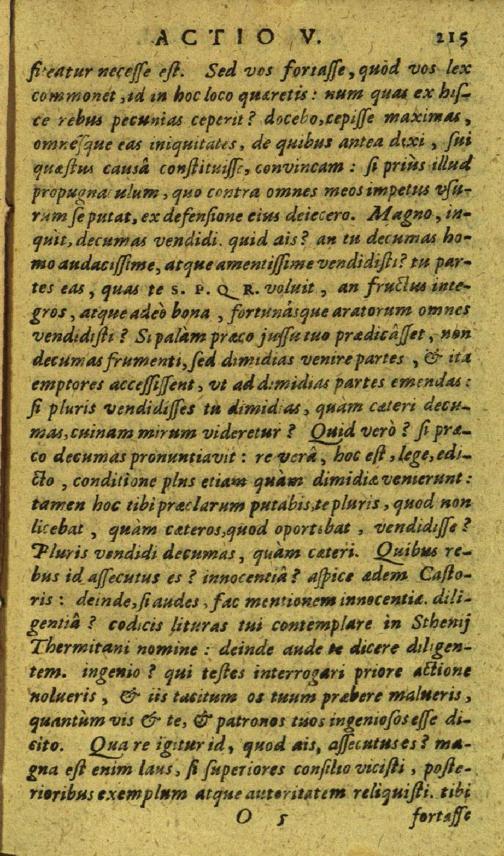 ACTIO V. 215
fiteatur neceſſe eſt. Sed vos fortaſſe, quòd vos lex
commonet, id in hoc loco quæretis: num quas ex hiſ-
ce rebus pecunias ceperit? docebo, cepiſſe maximas,
omneſque eas iniquitates, de quibus antea dixi, ſui
quæſtus causâ conſtituiſſe, convincam: ſi priùs illud
propugnaculum, quo contra omnes meos impetus vſu-
rum ſe putat, ex defenſione eius deiecero. Magno, in-
quit, decumas vendidi. quid ais? an tu decumas ho-
mo audaciſſime, atque amentiſſime vendidiſti? tu par-
tes eas, quas te S. P. Q R. voluit, an fructus inte-
gros, atque adeò bona, fortunáſque aratorum omnes
vendidiſti? Si palàm præco juſſu tuo prædicâſſet, non
decumas frumenti, ſed dimidias venire partes, & ita
emptores acceſſiſſent, vt ad dimidias partes emendas:
ſi pluris vendidiſſes tu dimidias, quàm cæteri decu-
mas, cuinam mirum videretur? Quid verò? ſi præ-
co decumas pronuntiavit: re verâ, hoc eſt, lege, edi-
cto, conditione plus etiam quàm dimidiæ venierunt:
tamen hoc tibi præclarum putabis, te pluris, quod non
licebat, quàm cæteros, quod oportebat, vendidiſſe?
Pluris vendidi decumas, quàm cæteri. Quibus re-
bus id aſſecutus es? innocentiâ? aſpice ædem Caſto-
ris: deinde, ſi audes, fac mentionem innocentiæ. dili-
gentiâ? codicis lituras tui contemplare in Sthenij
Thermitani nomine: deinde aude te dicere diligen-
tem. ingenio? qui teſtes interrogari priore actione
nolueris, & iis tacitum os tuum præbere malueris,
quantùm vis & te, & patronos tuos ingenioſos eſſe di-
cito. Qua re igitur id, quod ais, aſſecutus es? ma-
gna eſt enim laus, ſi ſuperiores conſilio viciſti, poſte-
rioribus exemplum atque autoritatem reliquiſti. tibi
O 5 fortaſſe